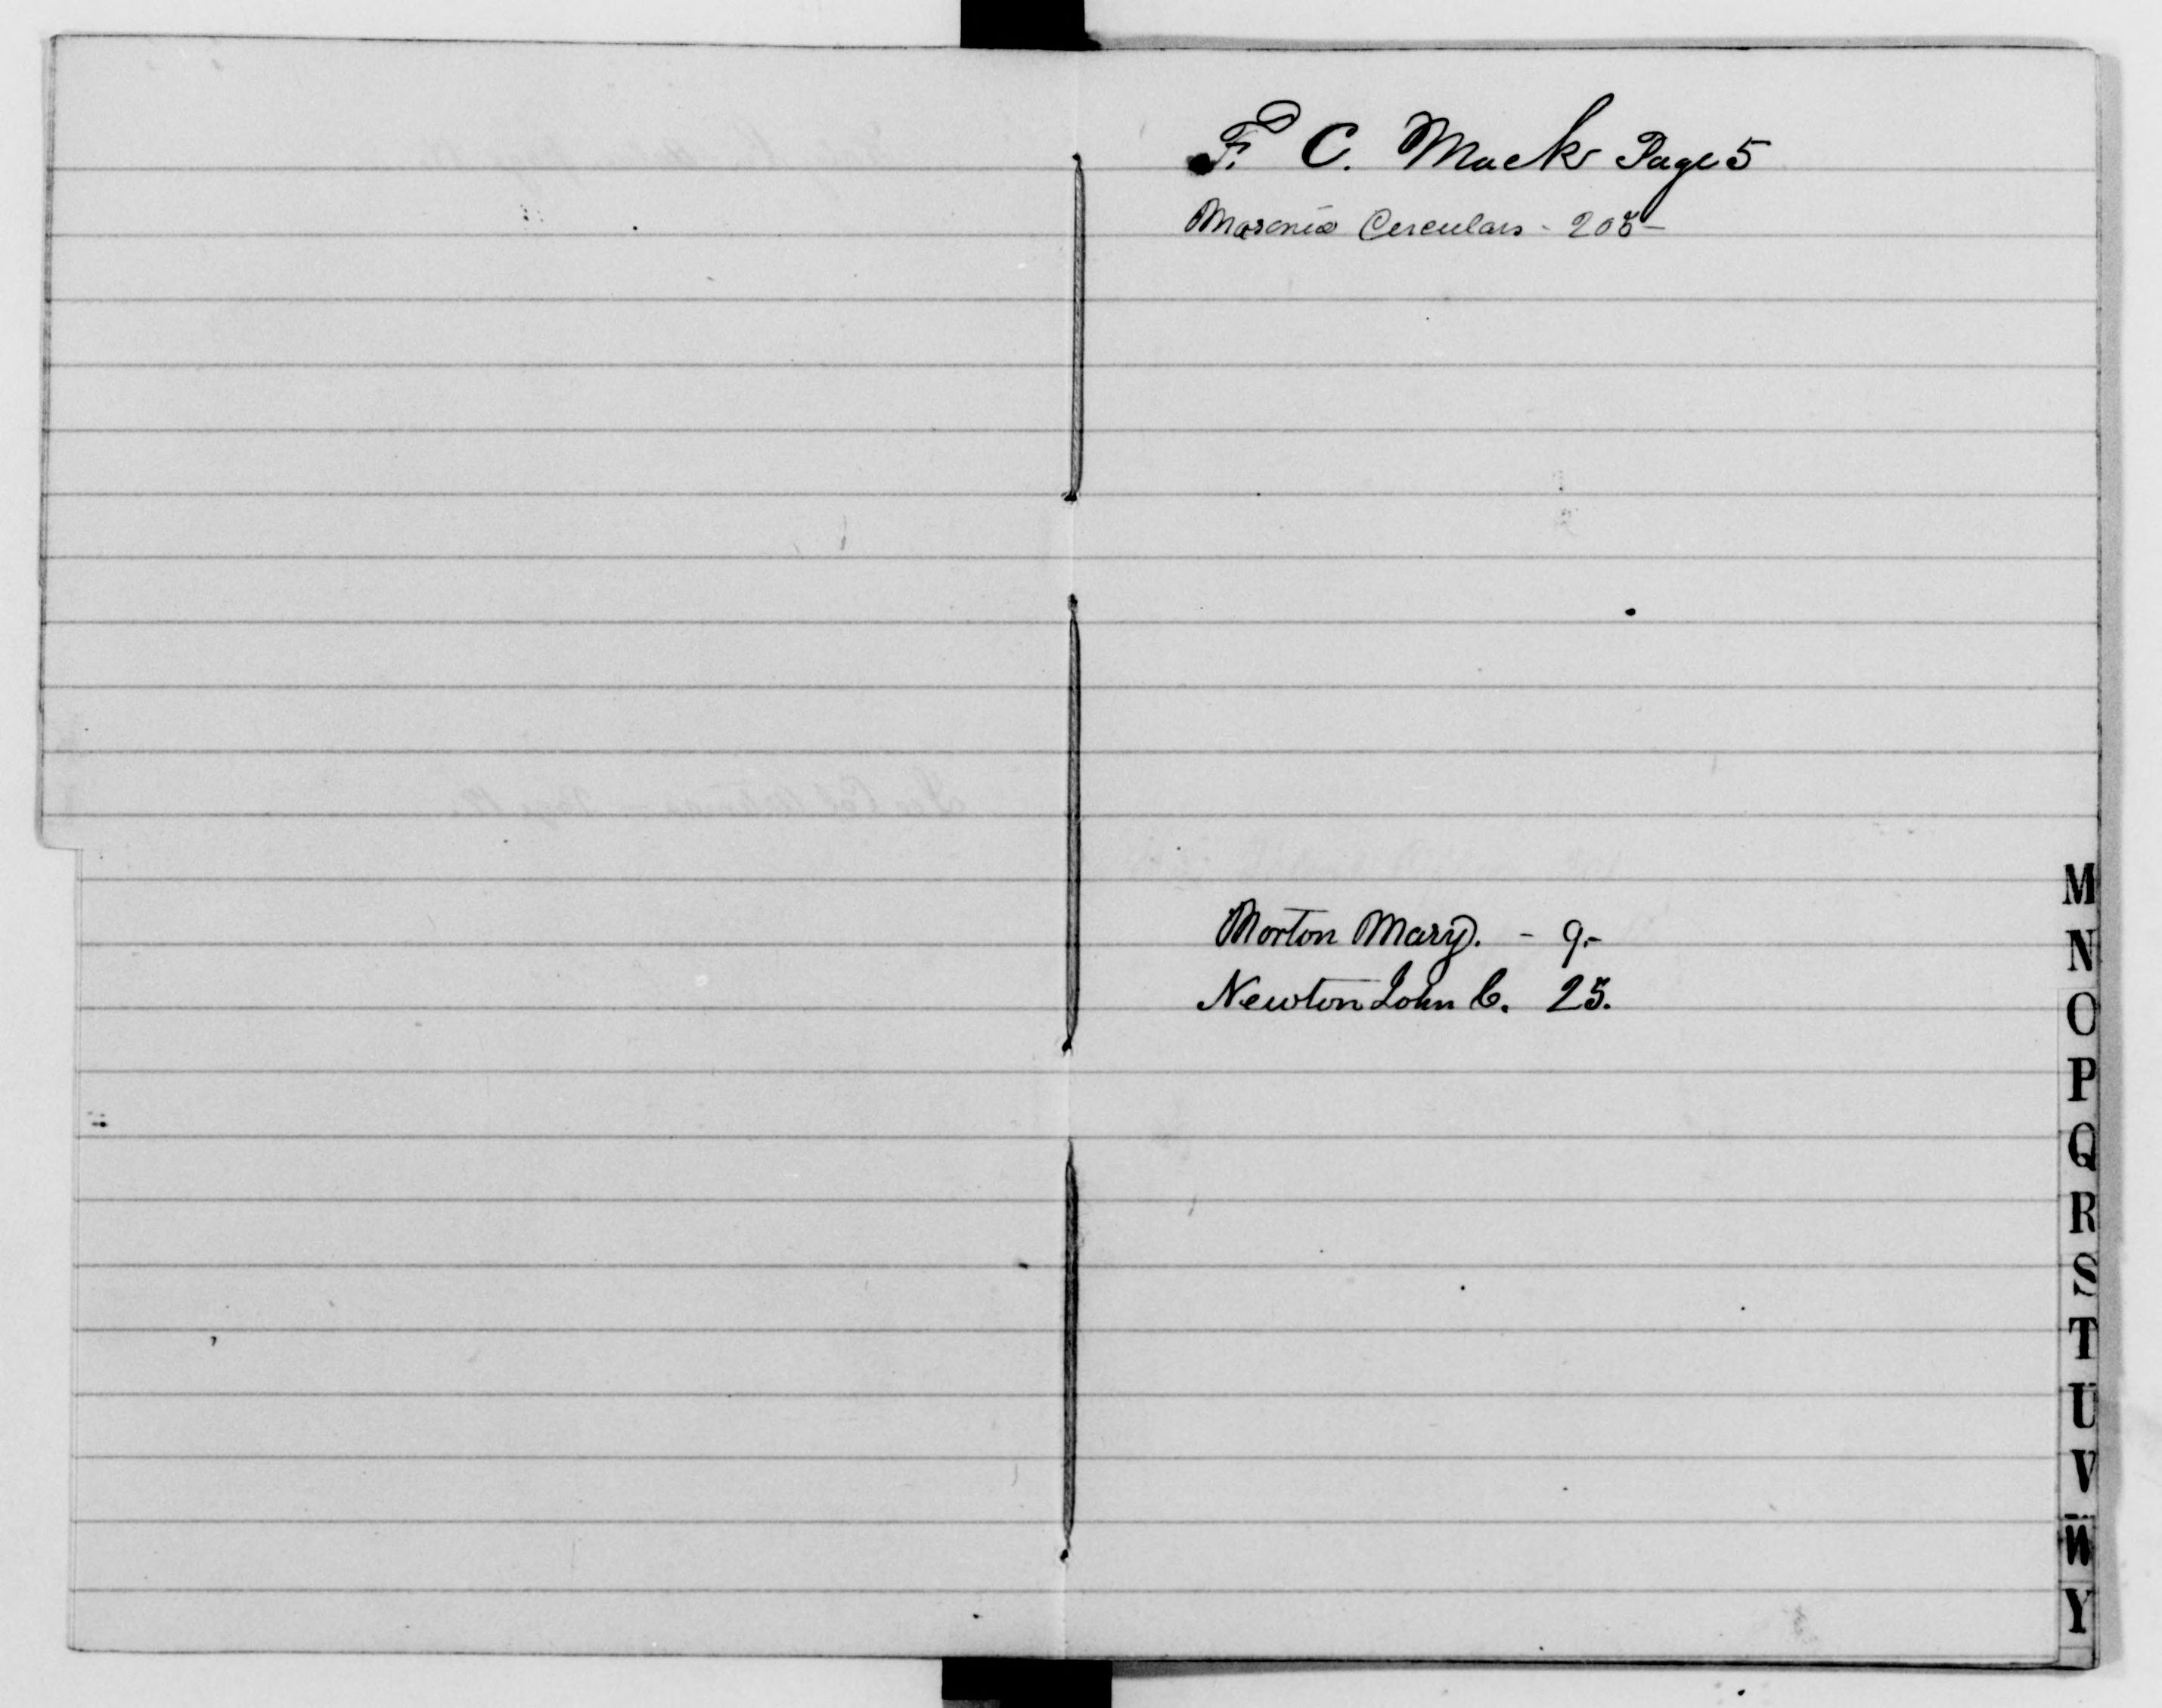 F. C. Mack Page 5
Masonic Cerculars - 205-
Morton Mary. - 9.-
Newton John C. 25.
M
N
O
P
Q
R
S
T
U
V
W
Y